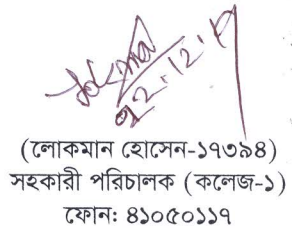 (লোকমান হোসেন-১৭৩৯৪)
সহকারী পরিচালক (কলেজ-১)
ফোন: ৪১০৫০১১৭